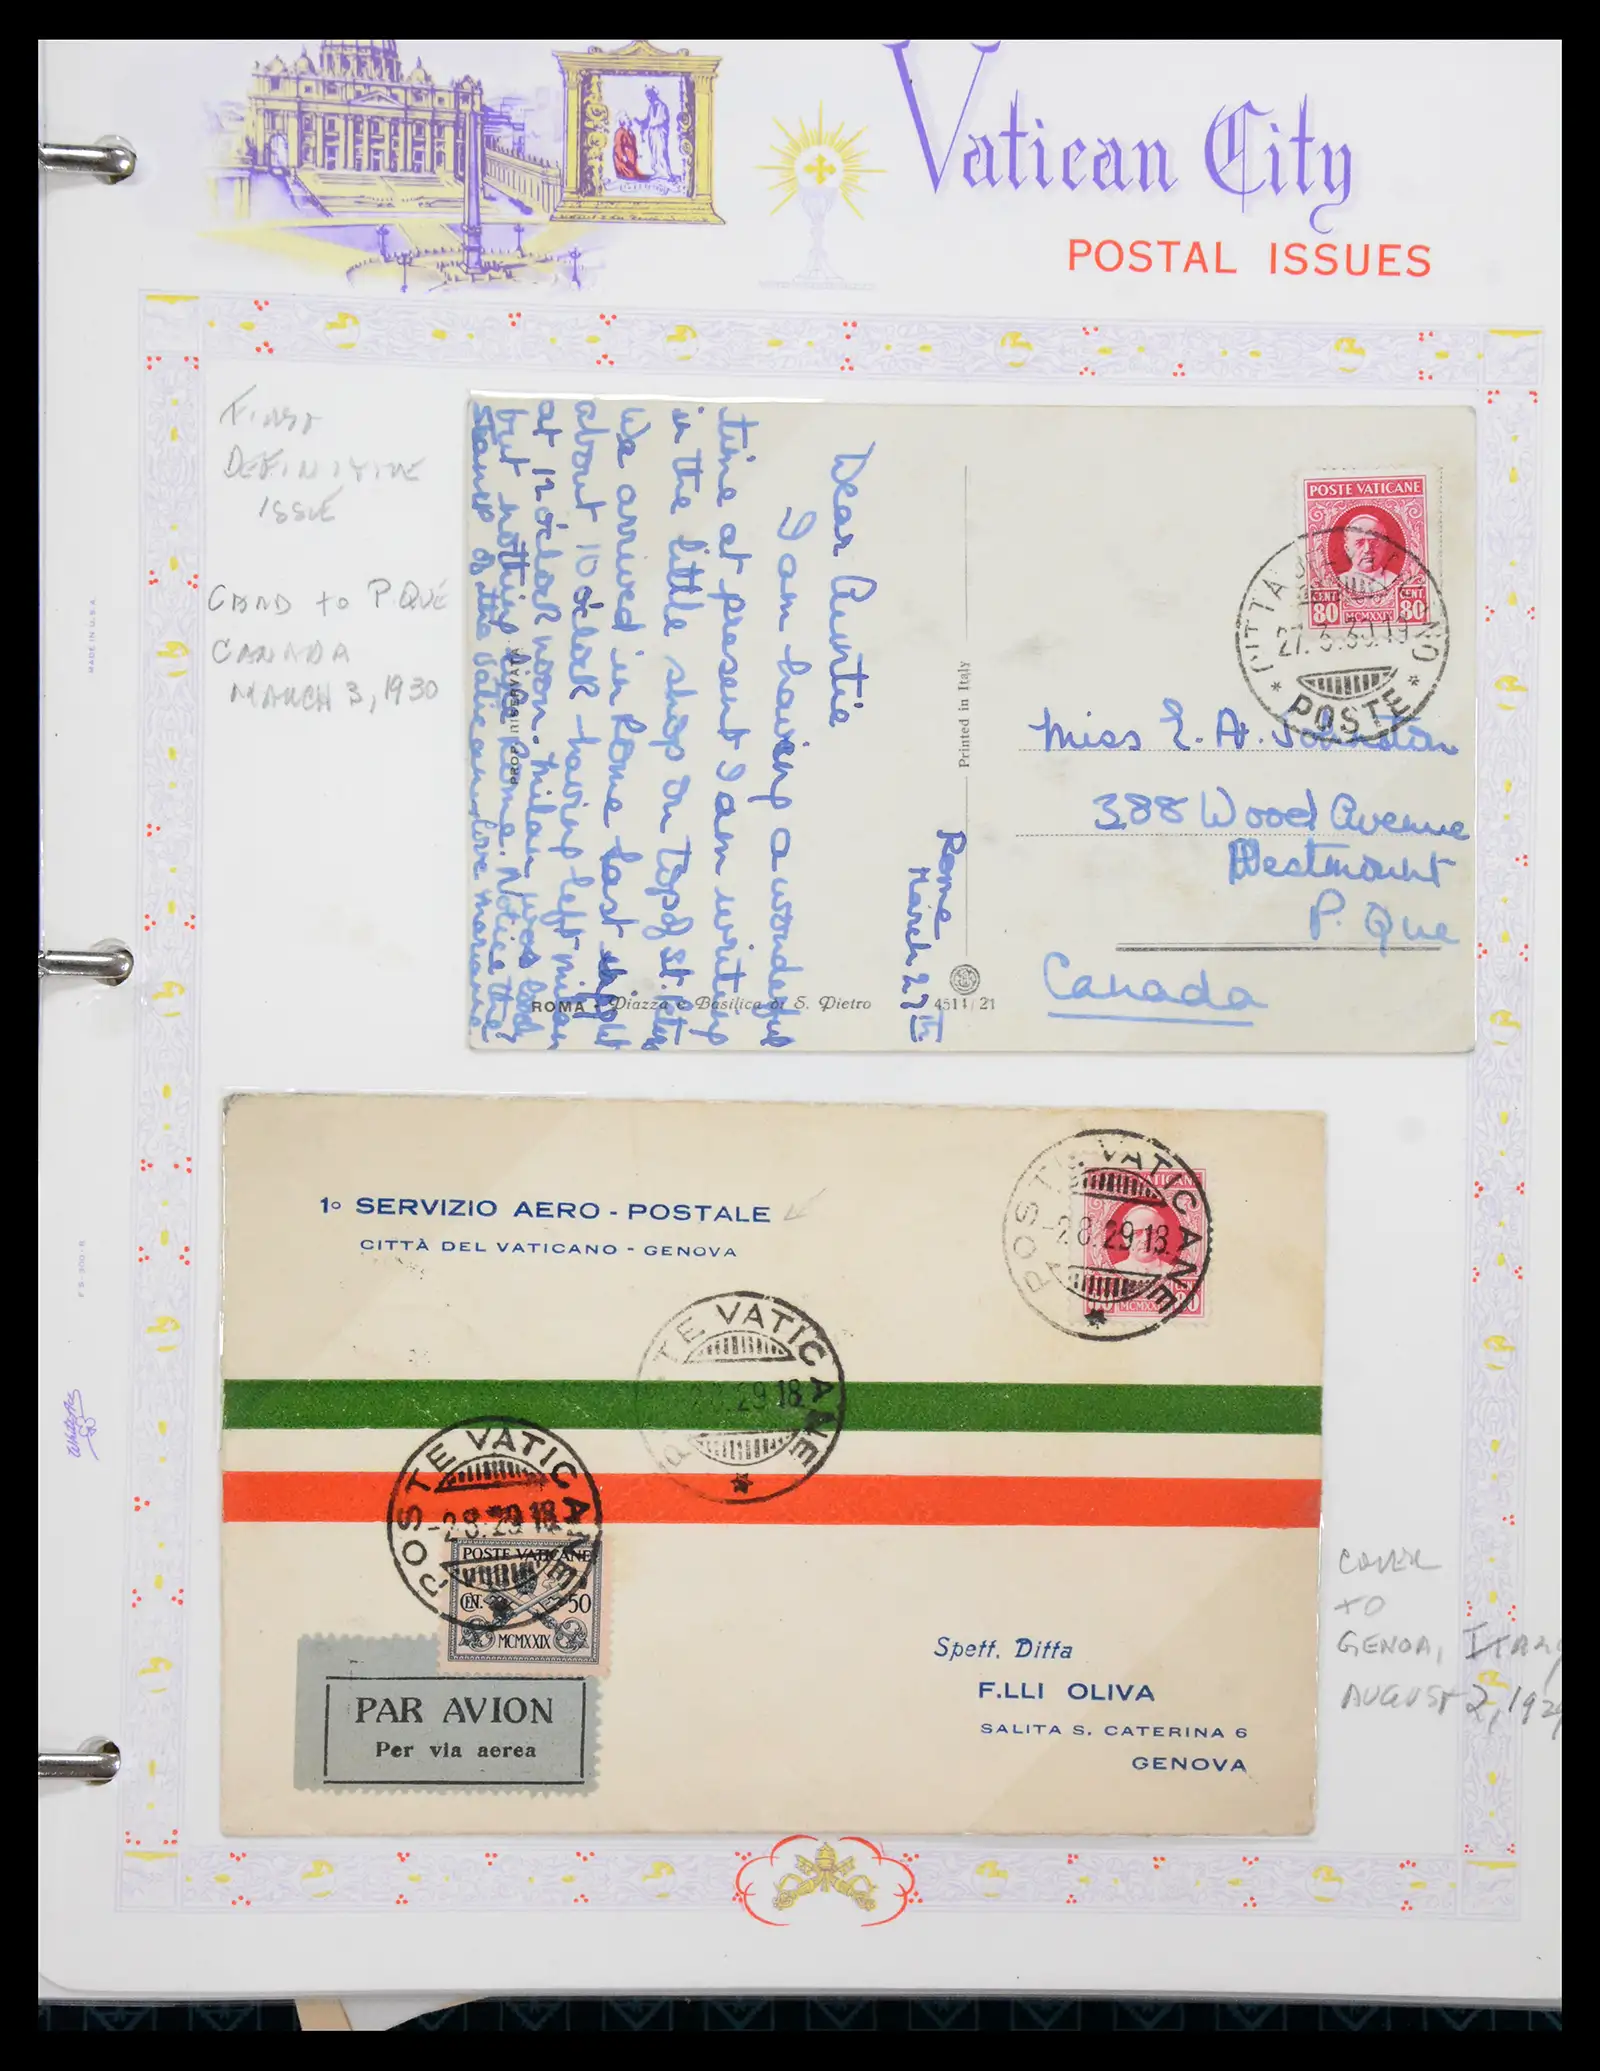 Vatican City
POSTAL ISSUES
First
Definitive
Issue
Card to P. Qué
Canada
March 3, 1930
MADE IN U.S.A.
Dear Auntie
I am having a wonderful
time at present I am writing
in the little shop on top of St. Peters
We arrived in Rome last night
about 10 o'clock - having left milan
at 12 o'clock noon. milan was lovely
but nothing like Rome. Notice the
stamp of the Vatican, love marianne
Rome
March 27th
PROP. RISERVATA
Printed in Italy
ROMA - Piazza e Basilica di S. Pietro
4511/21
POSTE VATICANE
CENT 80
MCMXXIX
CENT 80
CITTÀ DEL VATICANO
27.3.30.19
* POSTE *
Miss E. A. Johnston
388 Wood Avenue
Westmount
P. Que
Canada
1º SERVIZIO AERO - POSTALE
CITTÀ DEL VATICANO - GENOVA
POSTE VATICANE
-2.8.29.18.
MCMXXIX
POSTE VATICANE
29 18
POSTE VATICANE
-2.8.29 18
POSTE VATICANE
CENT. 50
MCMXXIX
PAR AVION
Per via aerea
Spett. Ditta
F.LLI OLIVA
SALITA S. CATERINA 6
GENOVA
Cover
to
Genoa, Italy
August 2, 1929